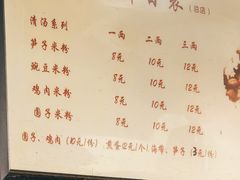 (总店)
清汤系列 一两 二两 三两
笋子米粉 8元 10元 12元
豌豆米粉 8元 10元 12元
鸡肉米粉 8元 10元 12元
圆子米粉 8元 10元 12元
圆子、鸡肉(10元/1份)
海带、笋子 3元/1份